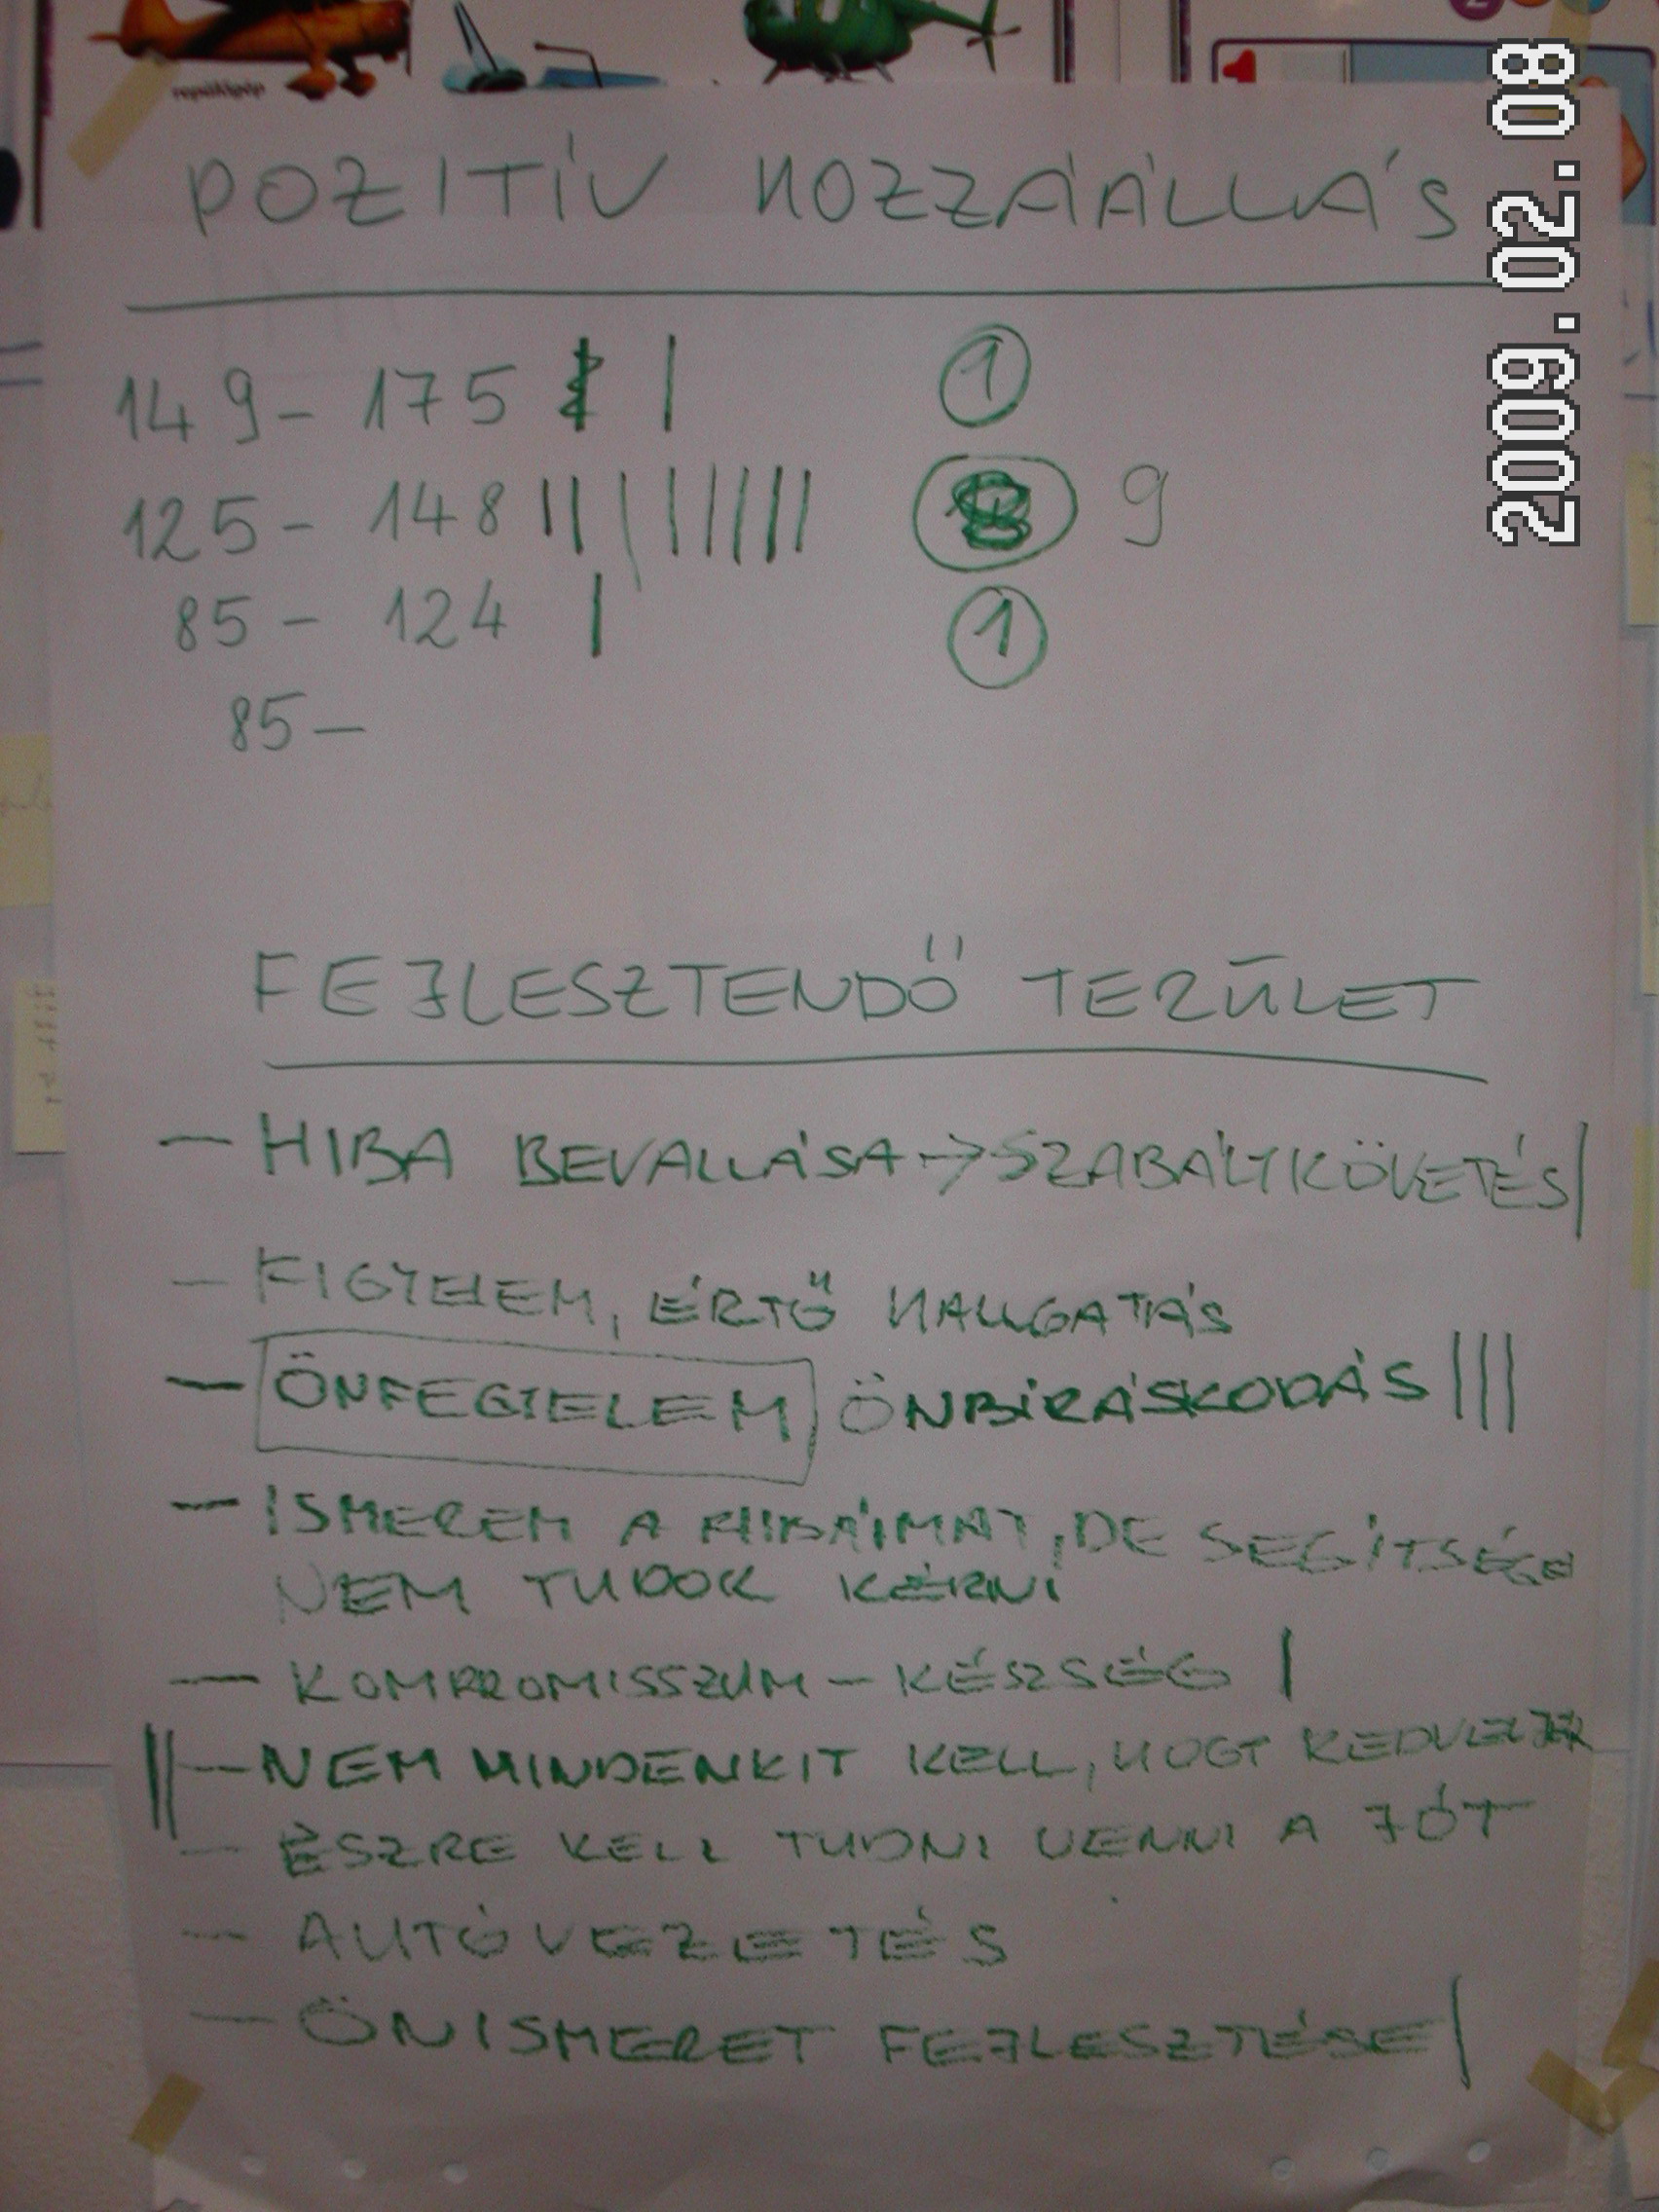 repülőgép
2009.02.08
POZITÍV HOZZÁÁLLÁS
149 - 175 | ①
125 - 148 ||||||||| 9
85 - 124 | ①
85 -
FEJLESZTENDŐ TERÜLET
- HIBA BEVALLÁSA → SZABÁLYKÖVETÉS |
- FIGYELEM, ÉRTŐ HALLGATÁS
- ÖNFEGYELEM ÖNBÍRÁSKODÁS |||
- ISMEREM A HIBÁIMAT, DE SEGÍTSÉGET
NEM TUDOK KÉRNI
- KOMPROMISSZUM - KÉSZSÉG |
|| - NEM MINDENKIT KELL, HOGY KEDVELJEK
- ÉSZRE KELL TUDNI VENNI A JÓT
- AUTÓVEZETÉS
- ÖNISMERET FEJLESZTÉSE |